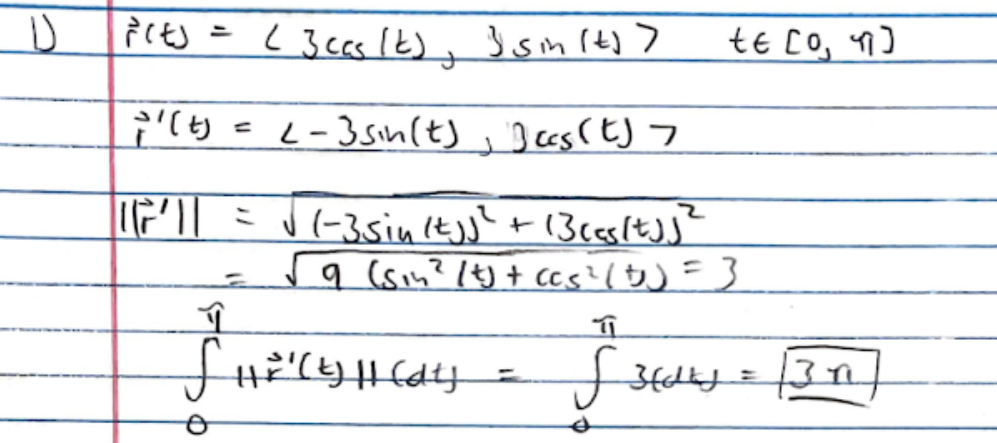 1) r⃗(t) = <3cos(t), 3sin(t)> t∈[0, π]
r⃗'(t) = <-3sin(t), 3cos(t)>
||r⃗'|| = √((-3sin(t))² + (3cos(t))²
= √(9 (sin²(t) + cos²(t)) = 3
∫₀^π ||r⃗'(t)|| (dt) = ∫₀^π 3(dt) = 3π